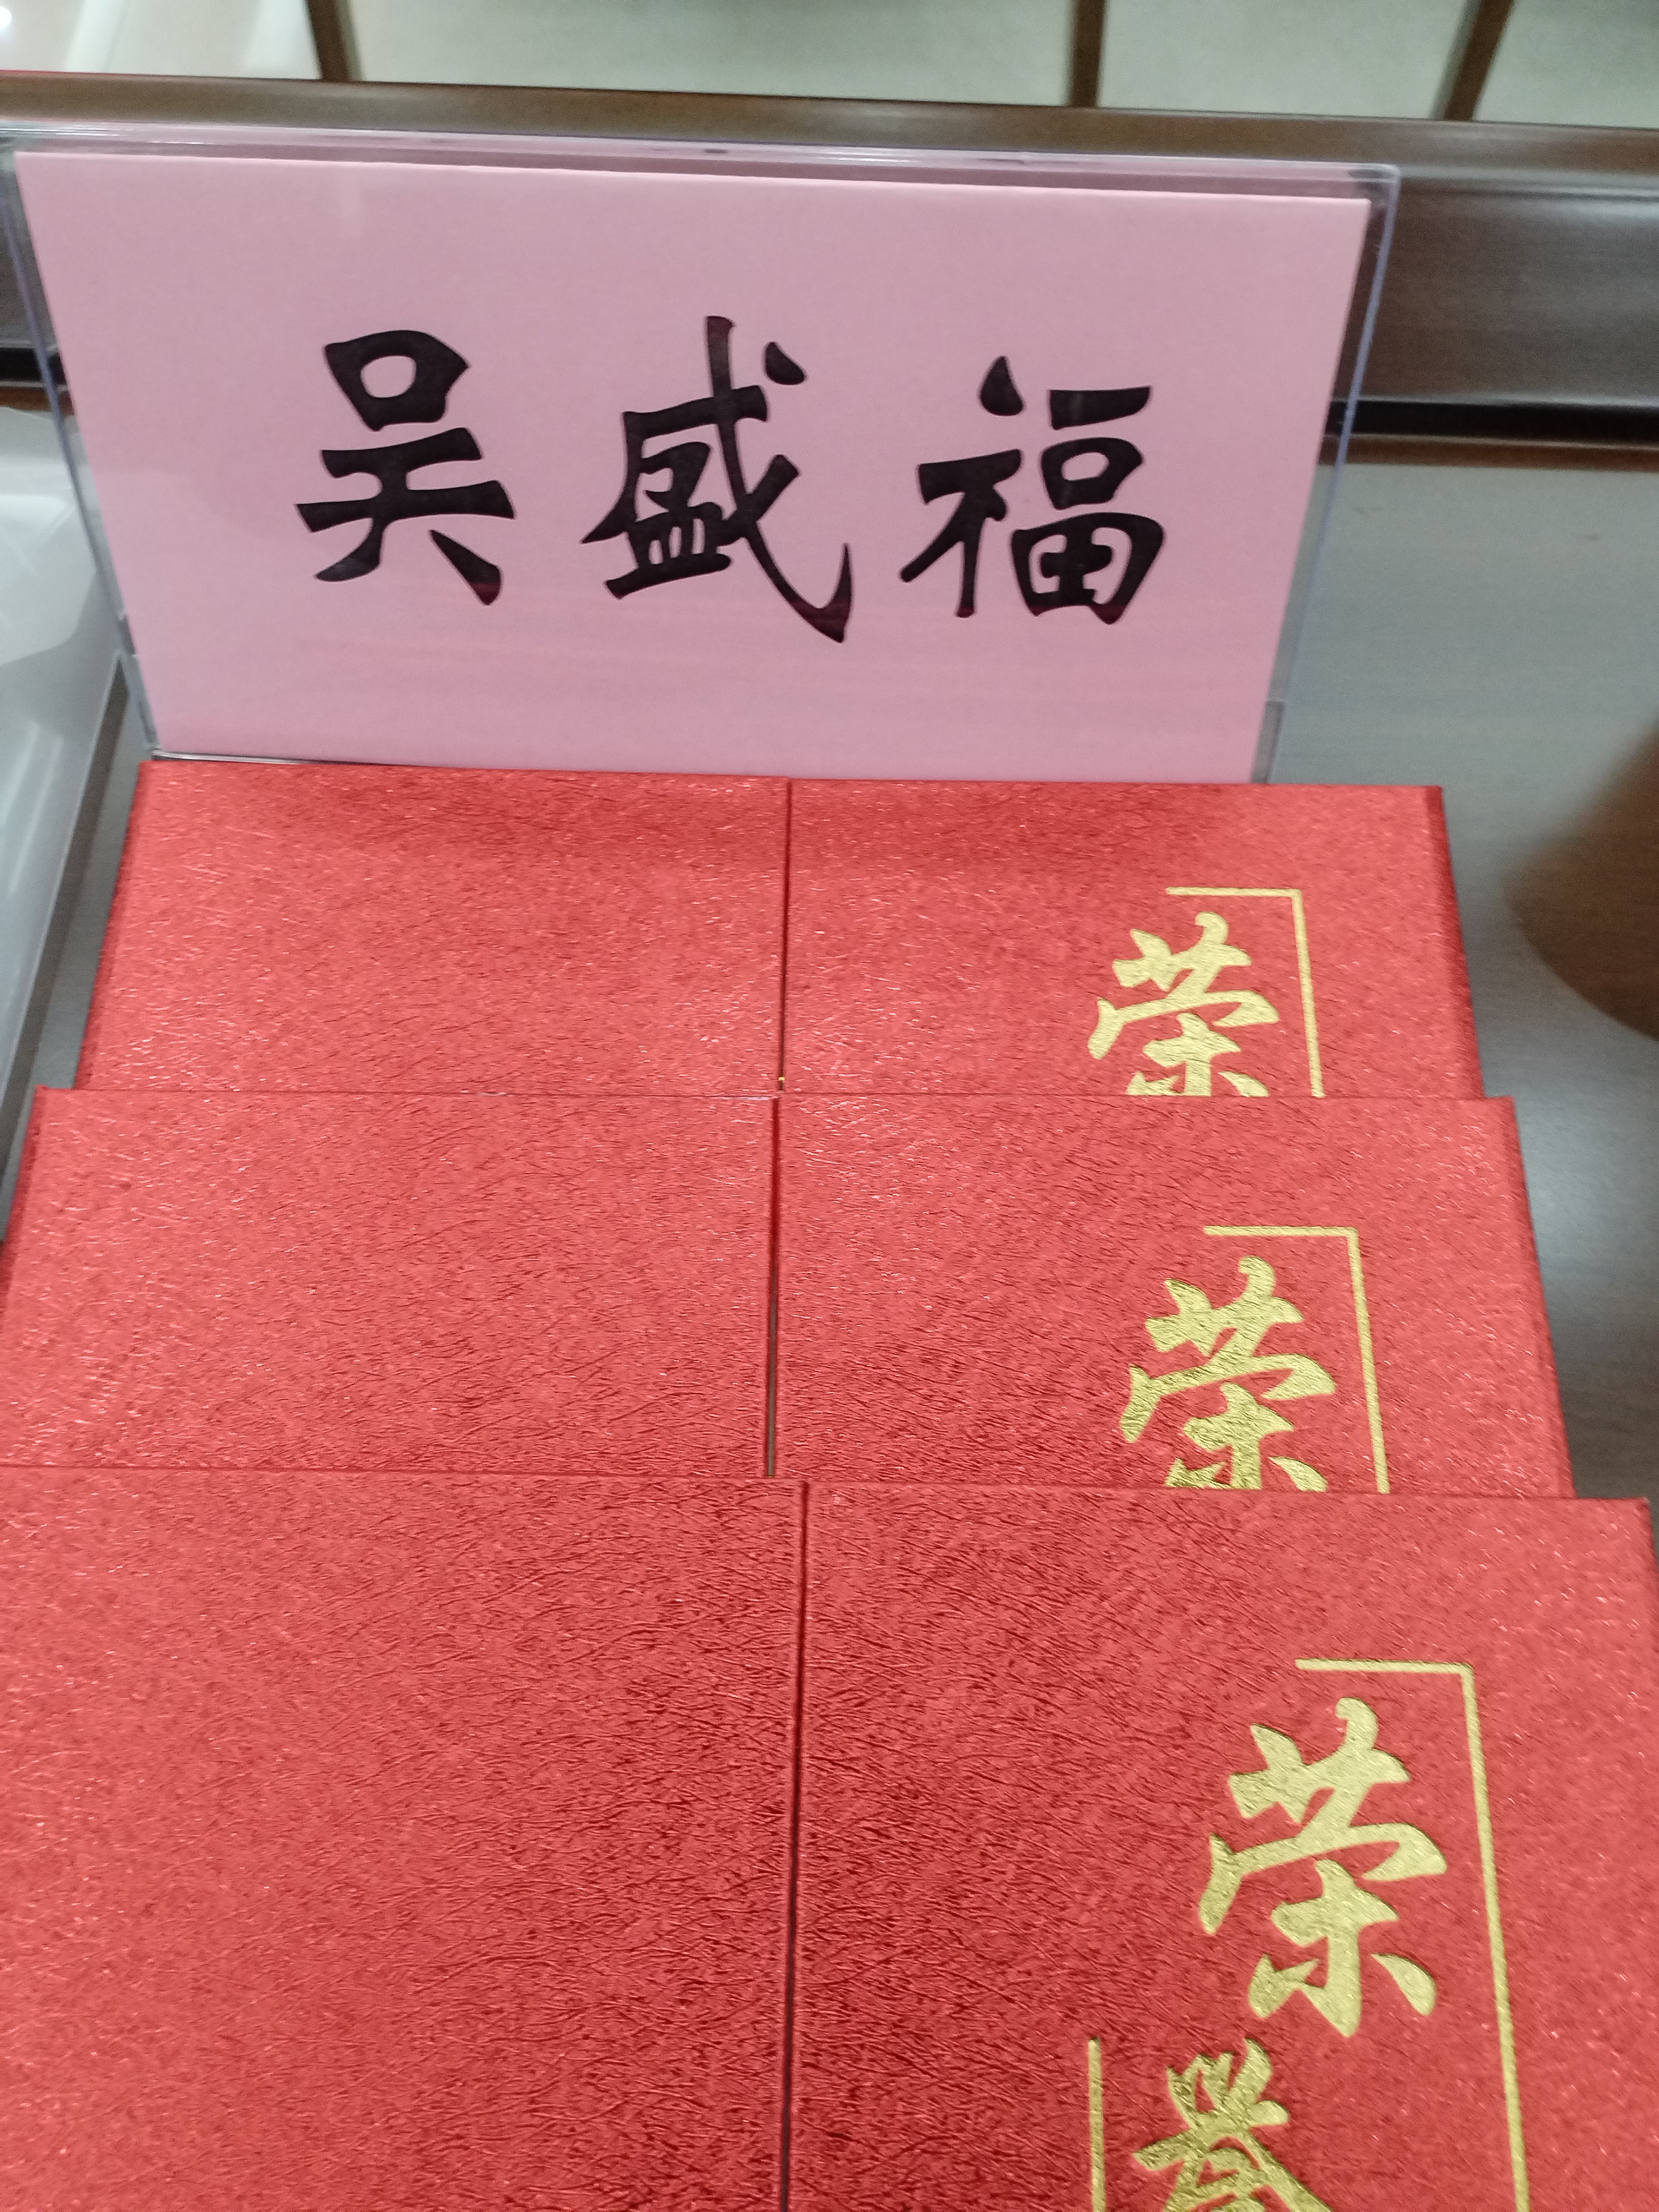 吴盛福
荣
荣
荣
誉